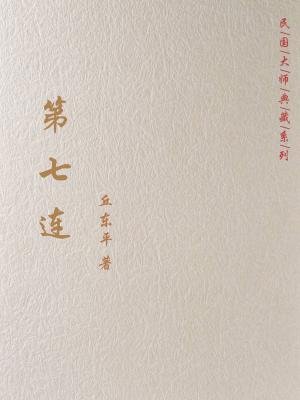 民|国|大|师|典|藏|系|列
第七连
丘东平著